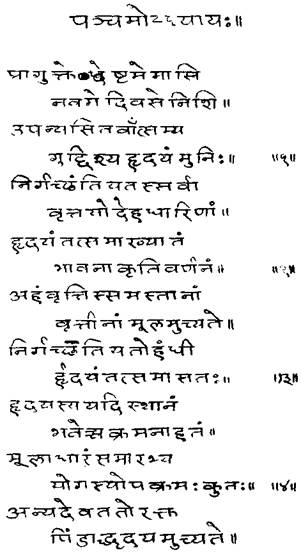 पञ्चमोऽध्यायः॥
प्रागुक्ते ष्टमे मासि
नवमे दिवसे निशि॥
उपन्यासितवान्सम्य
गुद्दिश्य हृदयं मुनिः॥ ॥१॥
निर्गच्छंति यतस्सर्वा
वृत्तयो देहधारिणां
हृदयं तत्समाख्यातं
भावनाकृतिवर्णनं॥ ॥२॥
अहंवृत्तिस्समस्तानां
वृत्तीनां मूलमुच्यते॥
निर्गच्छंति यतोहंधी
र्हृदयं तत्समासतः॥ ॥३॥
हृदयस्य यदि स्थानं
भवेच्चक्रमनाहतं॥
मूलाधारं समारभ्य
योगस्योपक्रमः कुतः॥ ॥४॥
अन्यदेव ततो रक्त
पिंडाद्धृदयमुच्यते॥